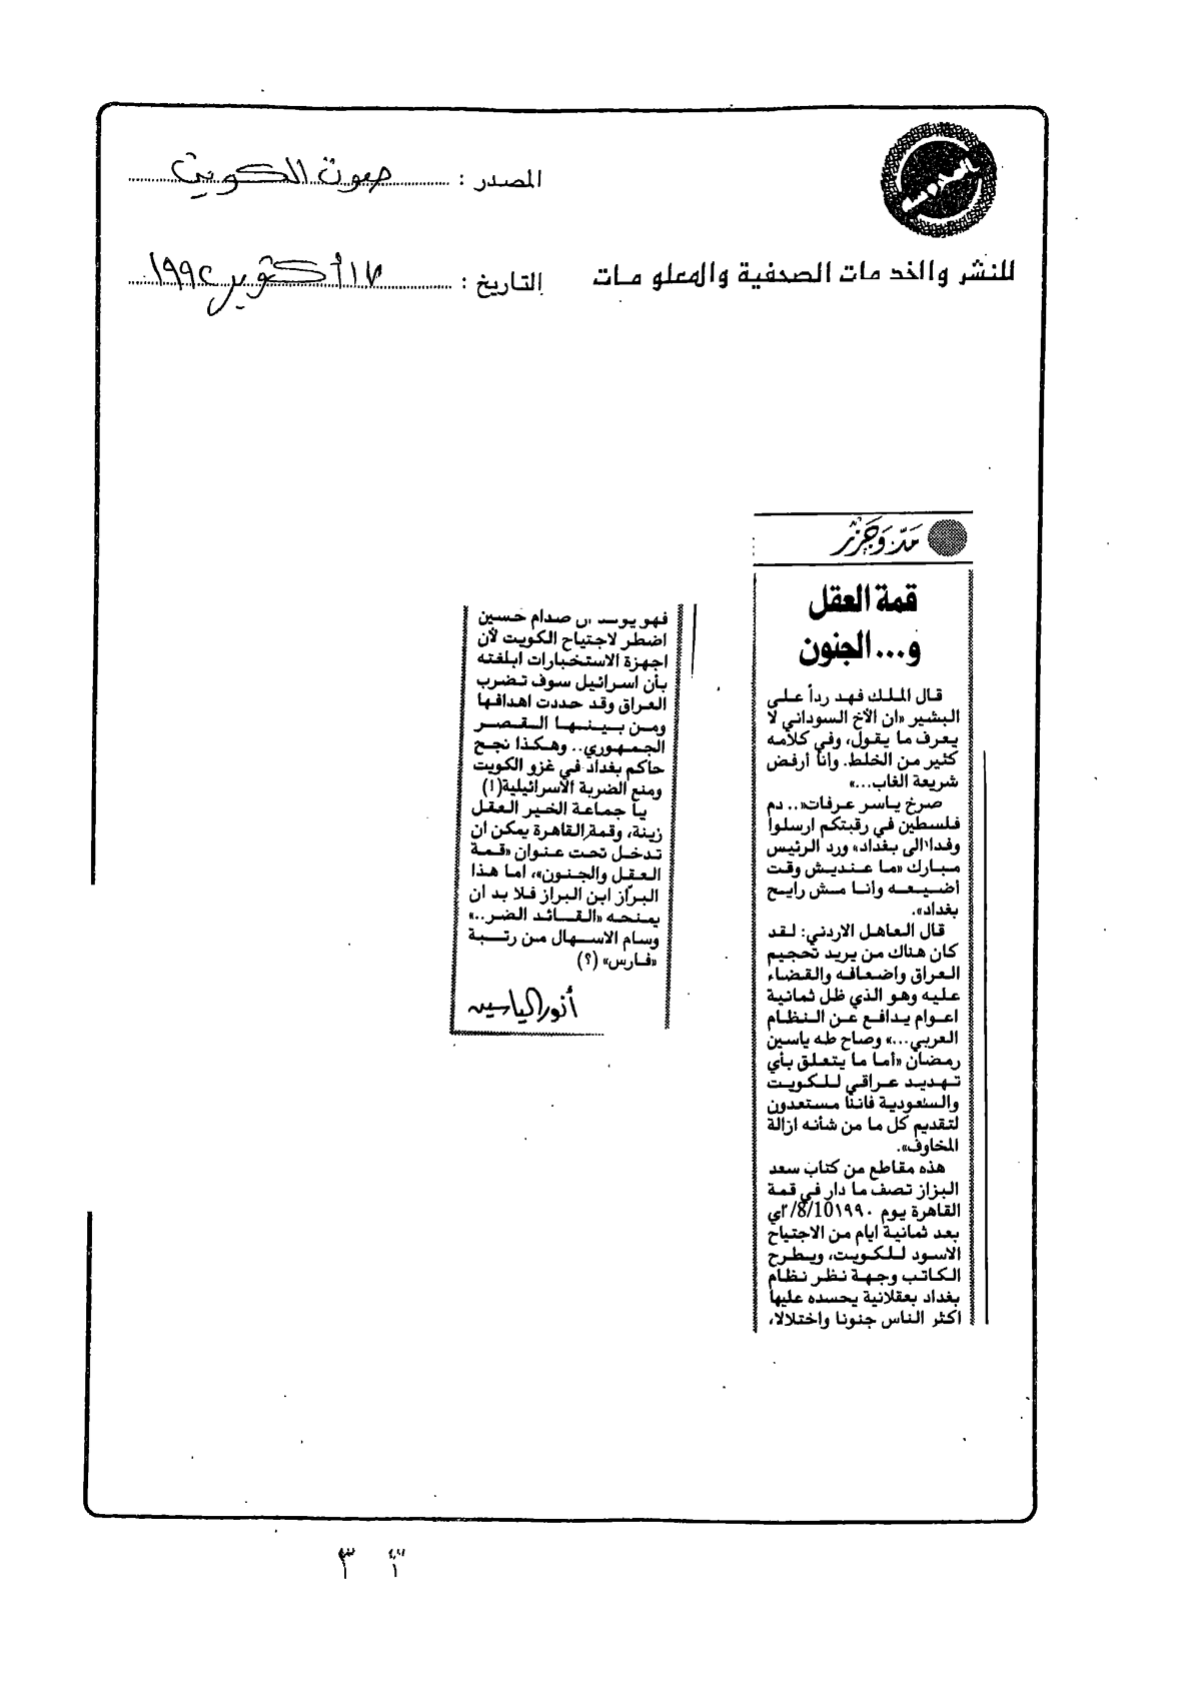 المصدر : صوت الكويت
للنشر والخدمات الصحفية والمعلومات
التاريخ : ١٧ أكتوبر ١٩٩٢
مَدّ وَجَزْر
قمة العقل
و... الجنون
قال الملك فهد رداً على
البشير «ان الأخ السوداني لا
يعرف ما يقول، وفي كلامه
كثير من الخلط. وانا أرفض
شريعة الغاب...»
صرخ ياسر عرفات «.. دم
فلسطين في رقبتكم ارسلوا
وفدا الى بغداد» ورد الرئيس
مبارك «ما عنديش وقت
أضيعه وانا مش رايح
بغداد».
قال العاهل الاردني: لقد
كان هناك من يريد تحجيم
العراق واضعافه والقضاء
عليه وهو الذي ظل ثمانية
اعوام يدافع عن النظام
العربي...» وصاح طه ياسين
رمضان «أما ما يتعلق بأي
تهديد عراقي للكويت
والسعودية فاننا مستعدون
لتقديم كل ما من شأنه ازالة
المخاوف».
هذه مقاطع من كتاب سعد
البزاز تصف ما دار في قمة
القاهرة يوم 8/10/١٩٩٠ اي
بعد ثمانية ايام من الاجتياح
الاسود للكويت، ويطرح
الكاتب وجهة نظر نظام
بغداد بعقلانية يحسده عليها
اكثر الناس جنونا واختلالا،
فهو صدام حسين
اضطر لاجتياح الكويت لأن
اجهزة الاستخبارات ابلغته
بأن اسرائيل سوف تضرب
العراق وقد حددت اهدافها
ومن بينها القصر
الجمهوري.. وهكذا نجح
حاكم بغداد في غزو الكويت
ومنع الضربة الاسرائيلية(!)
يا جماعة الخير العقل
زينة، وقمة القاهرة يمكن ان
تدخل تحت عنوان «قمة
العقل والجنون»، اما هذا
البزّاز ابن البزاز فلا بد أن
يمنحه «القائد الضر..»
وسام الاسهال من رتبة
«فارس» (؟)
أنور الياسين